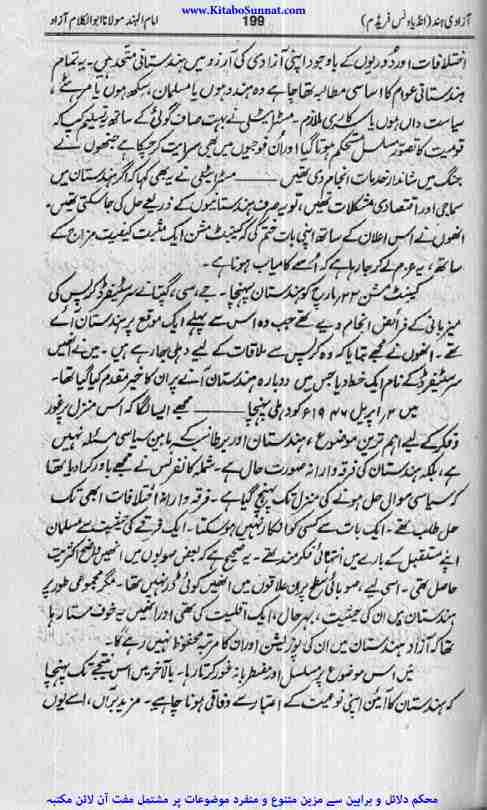 www.KitaboSunnat.com
آزادی ہند (انڈیا ونس فریڈم)
199
امام الہند مولانا ابوالکلام آزاد
اختلافات اور دُوریوں کے باوجود اپنی آزادی کی آرزو میں ہندستانی متحد ہیں۔ یہ تمام
ہندستانی عوام کا اساسی مطالبہ تھا چاہے وہ ہندو ہوں یا مسلمان، سکھ ہوں یا مرہٹے،
سیاست داں ہوں یا سرکاری ملازم۔ مسٹر ایٹلی نے بہت صاف گوئی کے ساتھ تسلیم کیا کہ
قومیت کا تصوّر مسلسل مستحکم ہوتا گیا اور اُن فوجیوں میں بھی سرایت کر چکا ہے جنھوں نے
جنگ میں شاندار خدمات انجام دی تھیں ——— مسٹر ایٹلی نے یہ بھی کہا کہ اگر ہندستان میں
سماجی اور اقتصادی مشکلات تھیں، تو یہ صرف ہندستانیوں کے ذریعے حل کی جا سکتی تھیں۔
انھوں نے اس اعلان کے ساتھ اپنی بات ختم کی کہ کیبنٹ مشن ایک مثبت کیفیت مزاج کے
ساتھ، یہ عزم لے کر جا رہا ہے کہ اُسے کامیاب ہونا ہے۔
کیبنٹ مشن ۲۳ مارچ کو ہندستان پہنچا۔ جے، سی، گپتا نے سر سٹیفرڈ کرپس کی
میزبانی کے فرائض انجام دیے تھے جب وہ اس سے پہلے ایک موقع پر ہندستان آئے
تھے۔ انھوں نے مجھے بتایا کہ وہ کرپس سے ملاقات کے لیے دہلی جا رہے ہیں۔ میں نے انھیں
سر سٹیفرڈ کے نام ایک خط دیا جس میں دوبارہ ہندستان آنے پر ان کا خیر مقدم کیا گیا تھا۔
میں ۲ اپریل ۱۹۴۶ کو دہلی پہنچا ——— مجھے ایسا لگا کہ اس منزل پر غور
و فکر کے لیے اہم ترین موضوع، ہندستان اور برطانیہ کے مابین سیاسی مسئلہ نہیں
ہے، بلکہ ہندستان کی فرقہ وارانہ صورت حال ہے۔ شملہ کانفرنس نے مجھے باور کرا دیا تھا
کہ سیاسی سوال حل ہونے کی منزل تک پہنچ گیا ہے۔ فرقہ وارانہ اختلافات ابھی تک
حل طلب تھے۔ ایک بات سے کسی کو انکار نہیں ہو سکتا۔ ایک فرقے کی حیثیت سے مسلمان
اپنے مستقبل کے بارے میں انتہائی فکر مند تھے۔ یہ صحیح ہے کہ بعض صوبوں میں انھیں واضح اکثریت
حاصل تھی۔ اسی لیے، صوبائی سطح پر ان علاقوں میں انھیں کوئی ڈر نہیں تھا۔ مگر مجموعی طور پر
ہندستان میں ان کی حیثیت، بہرحال، ایک اقلیت کی تھی اور انھیں یہ خوف ستا رہا
تھا کہ آزاد ہندستان میں ان کی پوزیشن اور ان کا مرتبہ محفوظ نہیں رہے گا۔
میں اس موضوع پر مسلسل اور مضطربانہ غور کرتا رہا۔ بالآخر میں اس نتیجے تک پہنچا
کہ ہندستان کا آئین اپنی نوعیت کے اعتبار سے وفاقی ہونا چاہیے۔ مزید برآں، اسے یوں
محکم دلائل و براہین سے مزین متنوع و منفرد موضوعات پر مشتمل مفت آن لائن مکتبہ